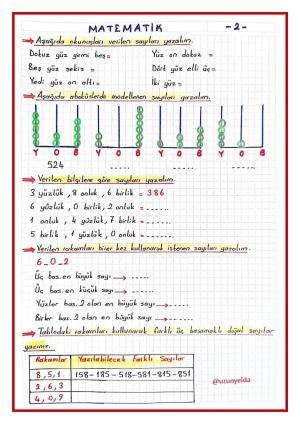 MATEMATİK -2-
Aşağıda okunuşları verilen sayıları yazalım.
Dokuz yüz yirmi beş= Yüz on dokuz =
Beş yüz sekiz = Dört yüz elli üç=
Yedi yüz on altı= İki yüz=
Aşağıda abaküslerde modellenen sayıları yazalım.
Y O B Y O B Y O B Y O B
524 ----- ----- -----
Verilen bilgilere göre sayıları yazalım.
3 yüzlük, 8 onluk, 6 birlik = 386
6 yüzlük, 0 birlik, 2 onluk = -----
1 onluk, 4 yüzlük, 7 birlik = -----
5 birlik, 1 yüzlük, 0 onluk = -----
Verilen rakamları birer kez kullanarak istenen sayıları yazalım.
6_0_2
Üç bas. en büyük sayı -----
Üç bas. en küçük sayı -----
Yüzler bas. 2 olan en büyük sayı -----
Birler bas. 2 olan en büyük sayı -----
Tablodaki rakamları kullanarak farklı üç basamaklı doğal sayılar
yazınız.
Rakamlar Yazılabilecek Farklı Sayılar
8,5,1 158-185-518-581-815-851
2,6,3
4,0,9
@uzunyelda